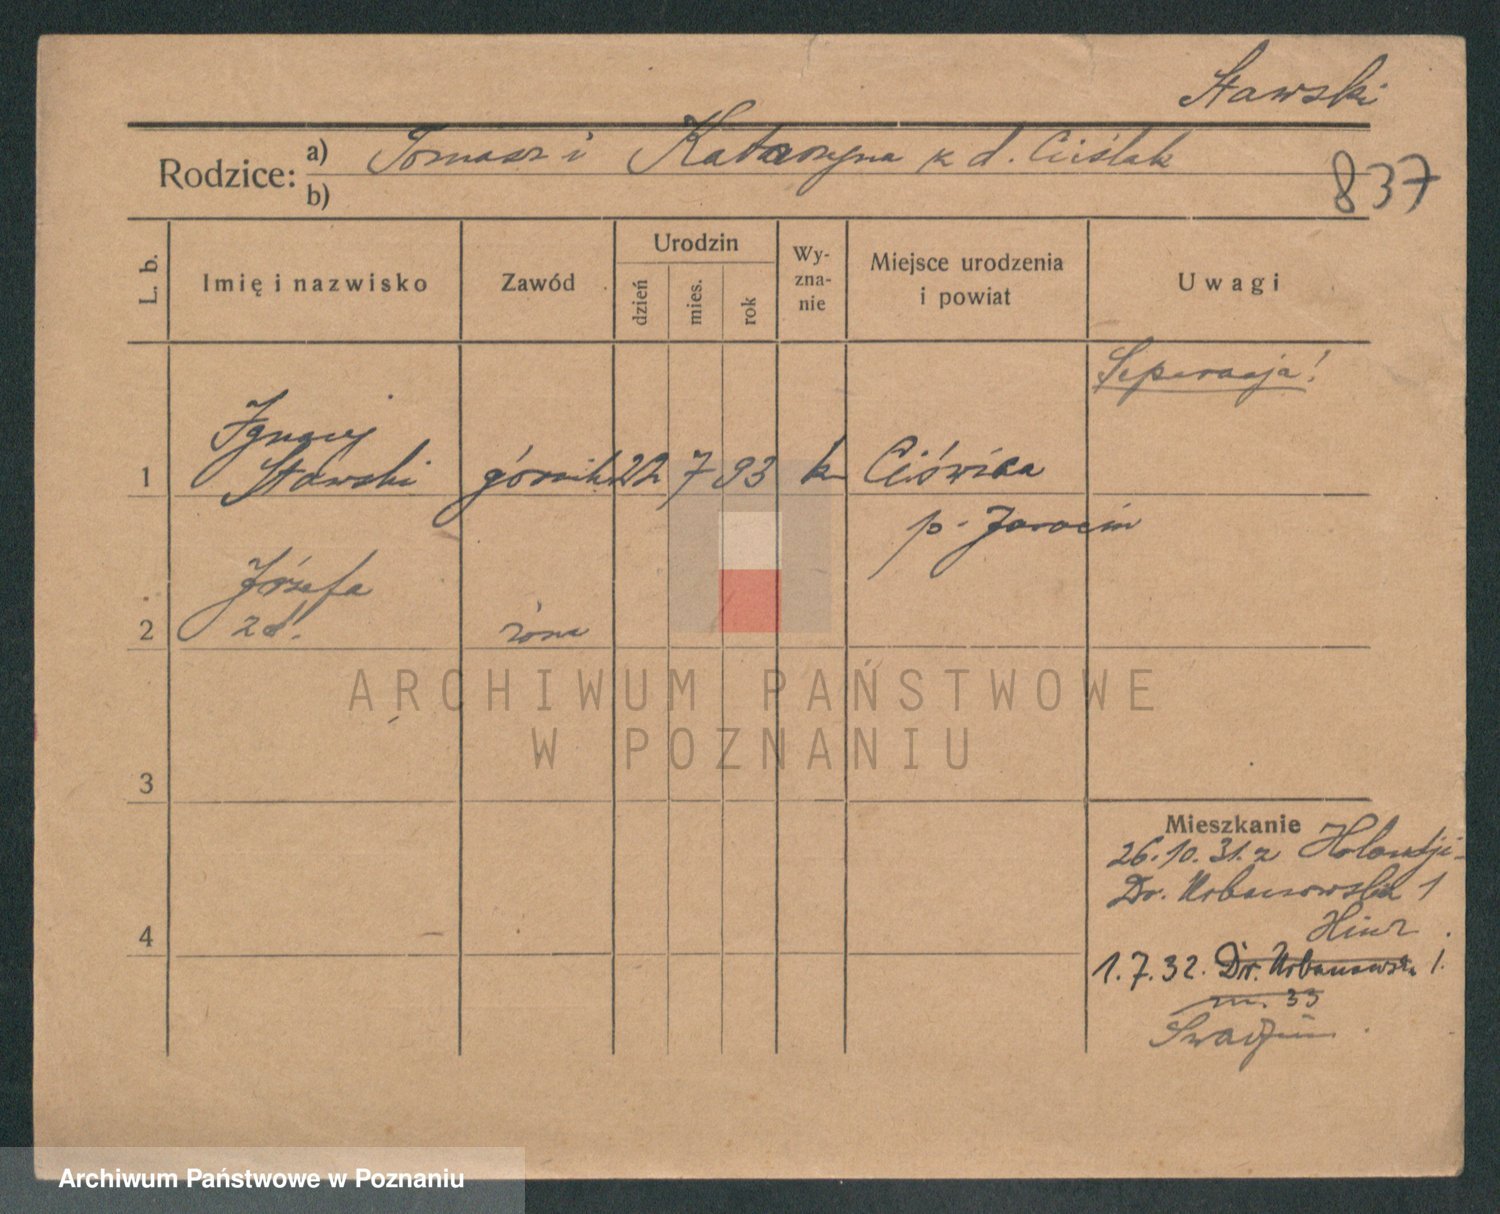 Stawski
Rodzice: a) Tomasz i Katarzyna z d. Cieślak
b)
837
L. b.
Imię i nazwisko
Zawód
Urodzin
dzień
mies.
rok
Wy-
zna-
nie
Miejsce urodzenia
i powiat
Uwagi
Seperacja!
Ignacy
1 Stawski górnik 22 7 93 k
p. Jarocin
Józefa
2 zd. żona
ARCHIWUM PAŃSTWOWE
W POZNANIU
3
Mieszkanie
26.10.31. z Holandji-
Dr. Urbanowska 1
4
1.7.32. Dr. Urbanowska 1.
m. 33
Swadzim
Archiwum Państwowe w Poznaniu